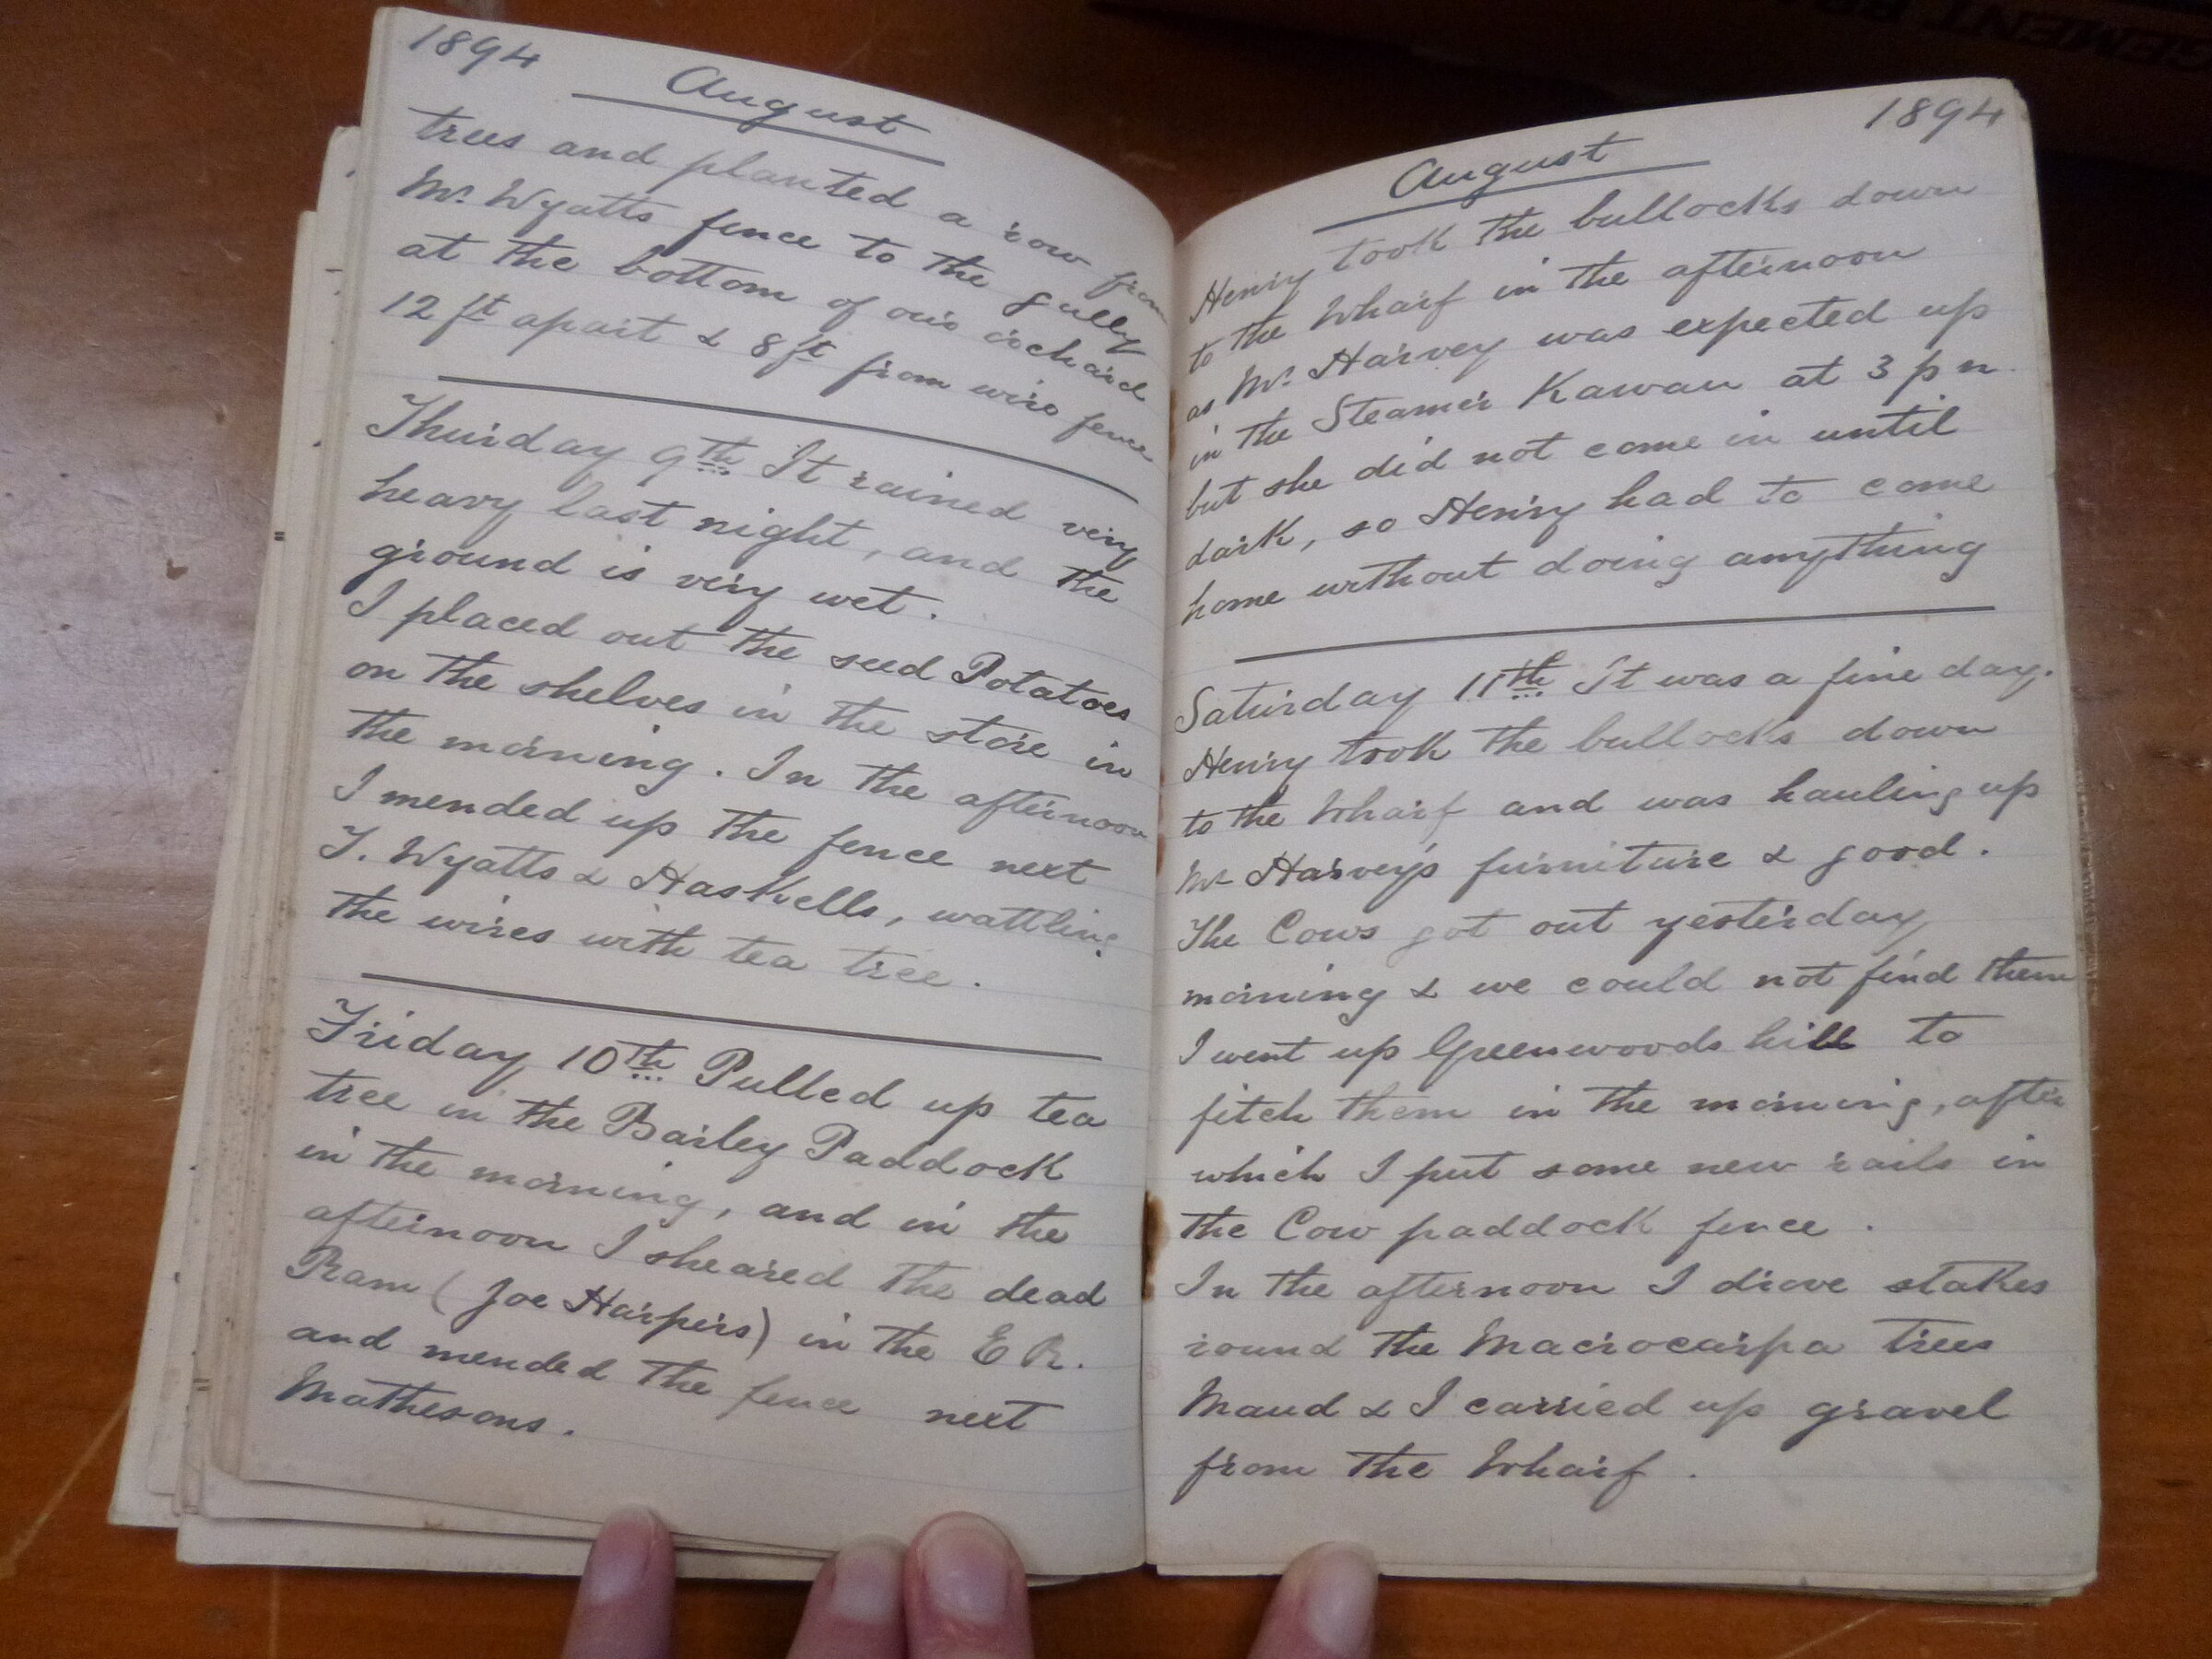 1894
August
trees and planted a row from
Mr. Wyatts fence to the gully
at the bottom of our orchard
12 ft apart & 8 ft from wire fence
Thursday 9th It rained very
heavy last night, and the
ground is very wet.
I placed out the seed Potatoes
on the shelves in the store in
the morning. In the afternoon
I mended up the fence next
T. Wyatts & Haskells, wattling
the wires with tea tree.
Friday 10th Pulled up tea
tree in the Bailey Paddock
in the morning, and in the
afternoon I sheared the dead
Ram (Joe Harpers) in the E R.
and mended the fence next
Mathesons.
1894
August
Henry took the bullocks down
to the Wharf in the afternoon
as Mr. Harvey was expected up
in the Steamer Kawau at 3 p m
but she did not come in until
dark, so Henry had to come
home without doing anything
Saturday 11th It was a fine day.
Henry took the bullocks down
to the Wharf and was hauling up
Mr Harvey's furniture & good.
The Cows got out yesterday
morning & we could not find them
I went up Greenwoods hill to
fetch them in the morning, after
which I put some new rails in
the Cow paddock fence.
In the afternoon I drove stakes
round the Macrocarpa trees
Maud & I carried up gravel
from the Wharf.